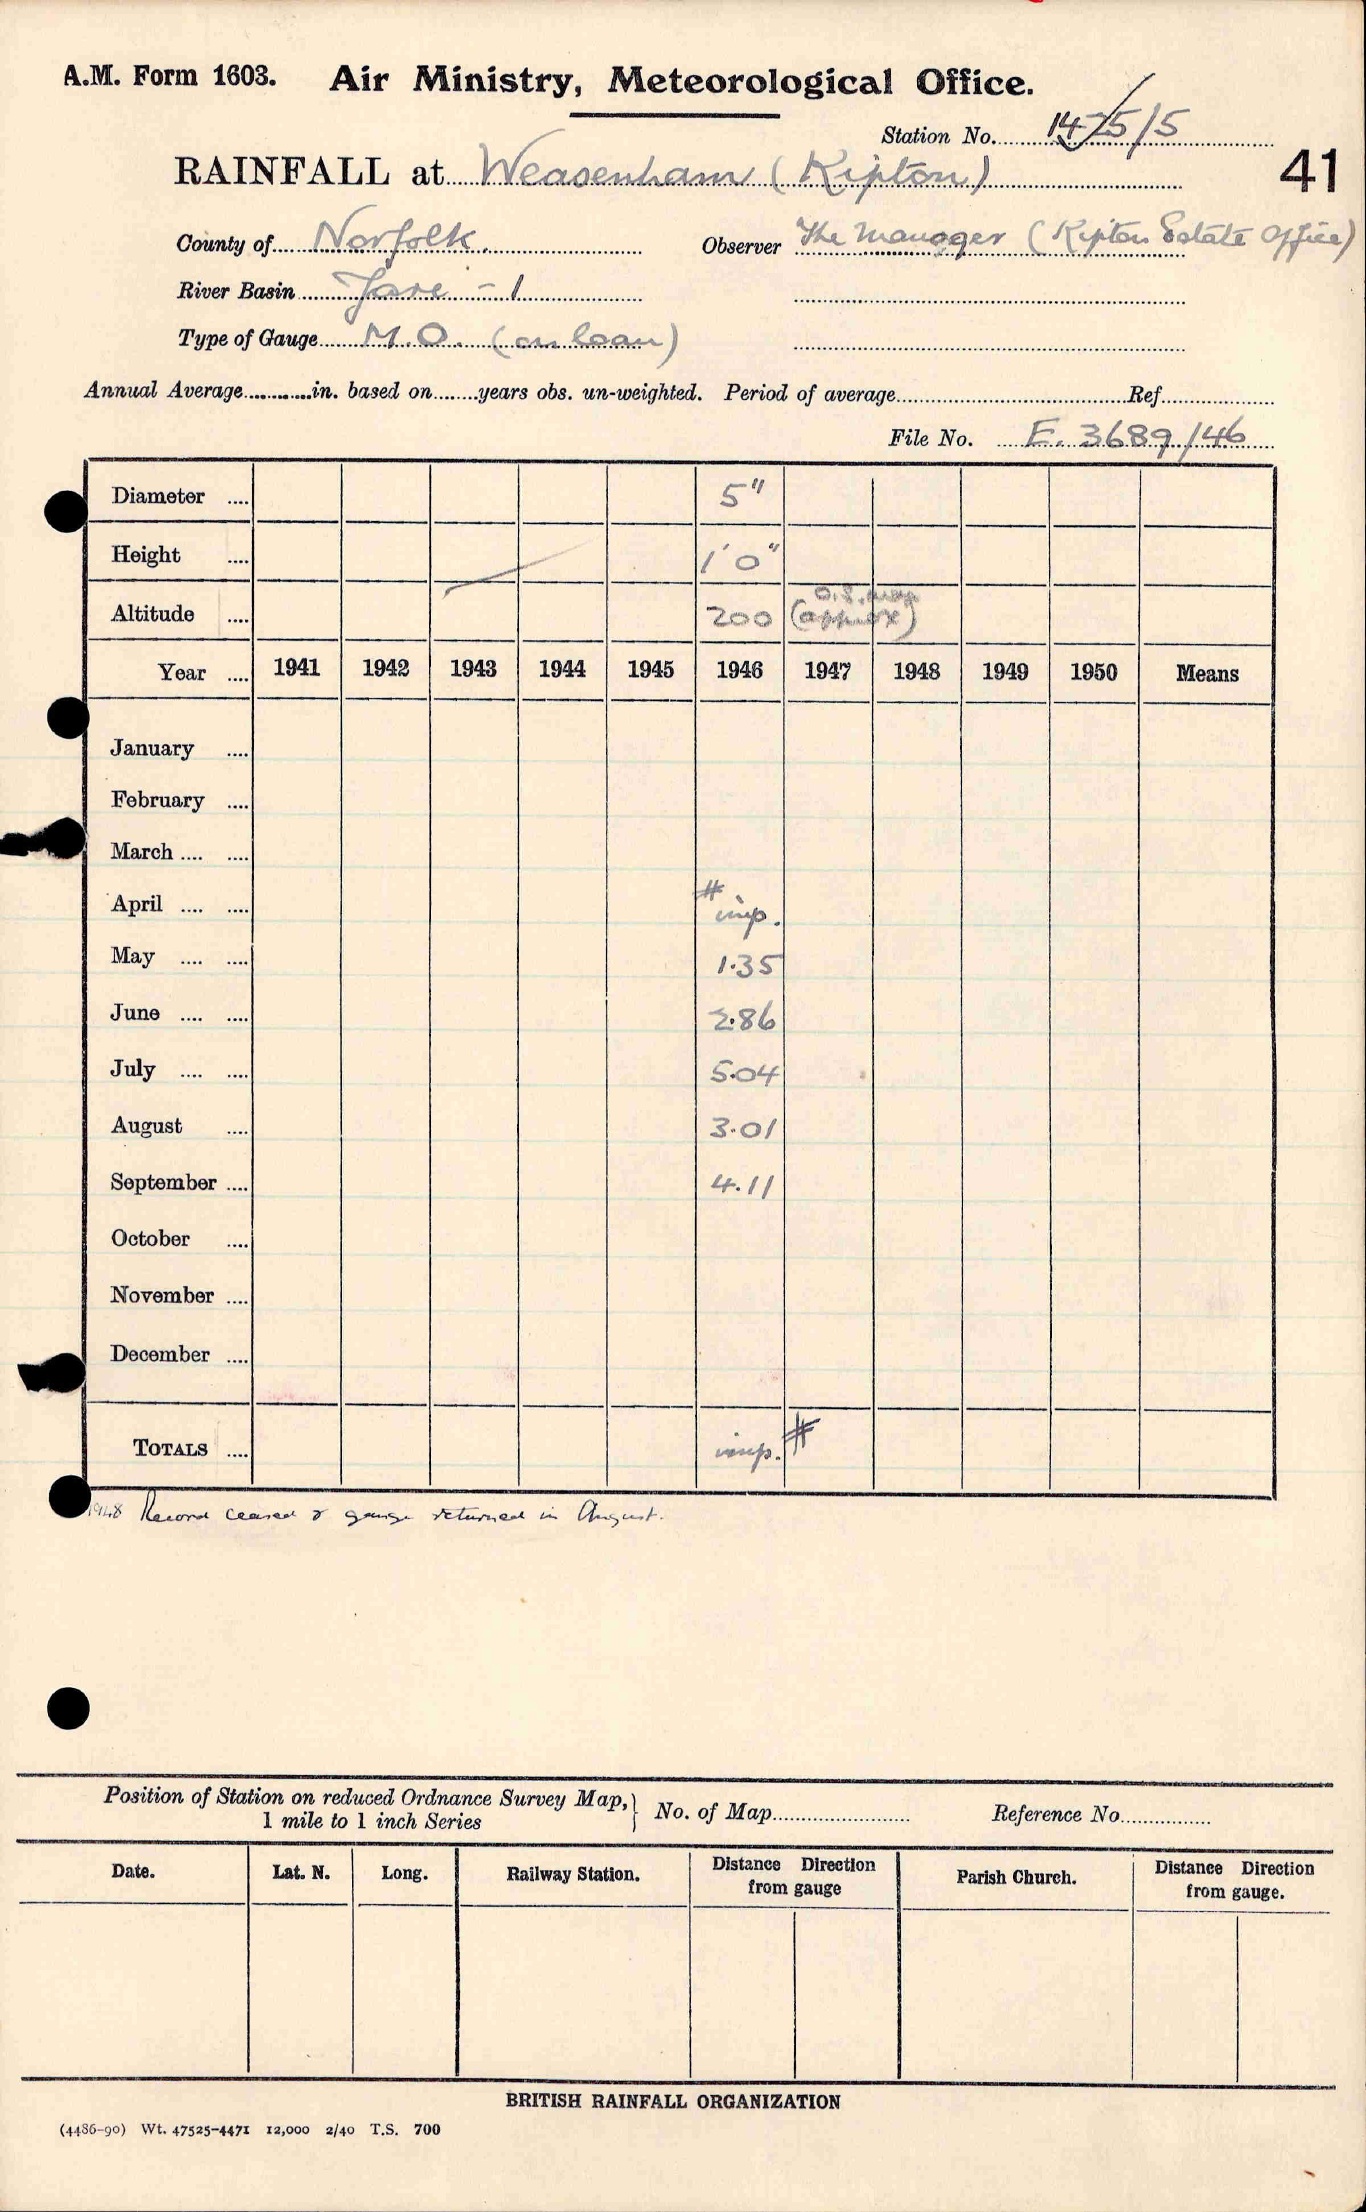 A.M. Form 1603. Air Ministry, Meteorological Office.
Station No. 1475/5
41
RAINFALL at Weasenham (Kipton)
County of Norfolk. Observer The Manager (Kipton Estate Office)
River Basin Yare - 1
Type of Gauge M.O. (on loan)
Annual Average............in. based on........years obs. un-weighted. Period of average........ Ref........
File No. E. 3689/46
Diameter .... 5"
Height .... 1' 0"
O.S. map
Altitude .... 200 (approx)
Year .... 1941 1942 1943 1944 1945 1946 1947 1948 1949 1950 Means
January ....
February ....
March .... ....
April .... .... # imp.
May .... .... 1.35
June .... .... 2.86
July .... .... 5.04
August .... 3.01
September .... 4.11
October ....
November ....
December ....
TOTALS .... imp. #
1948 Record ceased & gauge returned in August.
Position of Station on reduced Ordnance Survey Map, } No. of Map........ Reference No........
1 mile to 1 inch Series
Date. Lat. N. Long. Railway Station. Distance Direction from gauge Parish Church. Distance Direction from gauge.
BRITISH RAINFALL ORGANIZATION
(4486-90) Wt. 47525-4471 12,000 2/40 T.S. 700